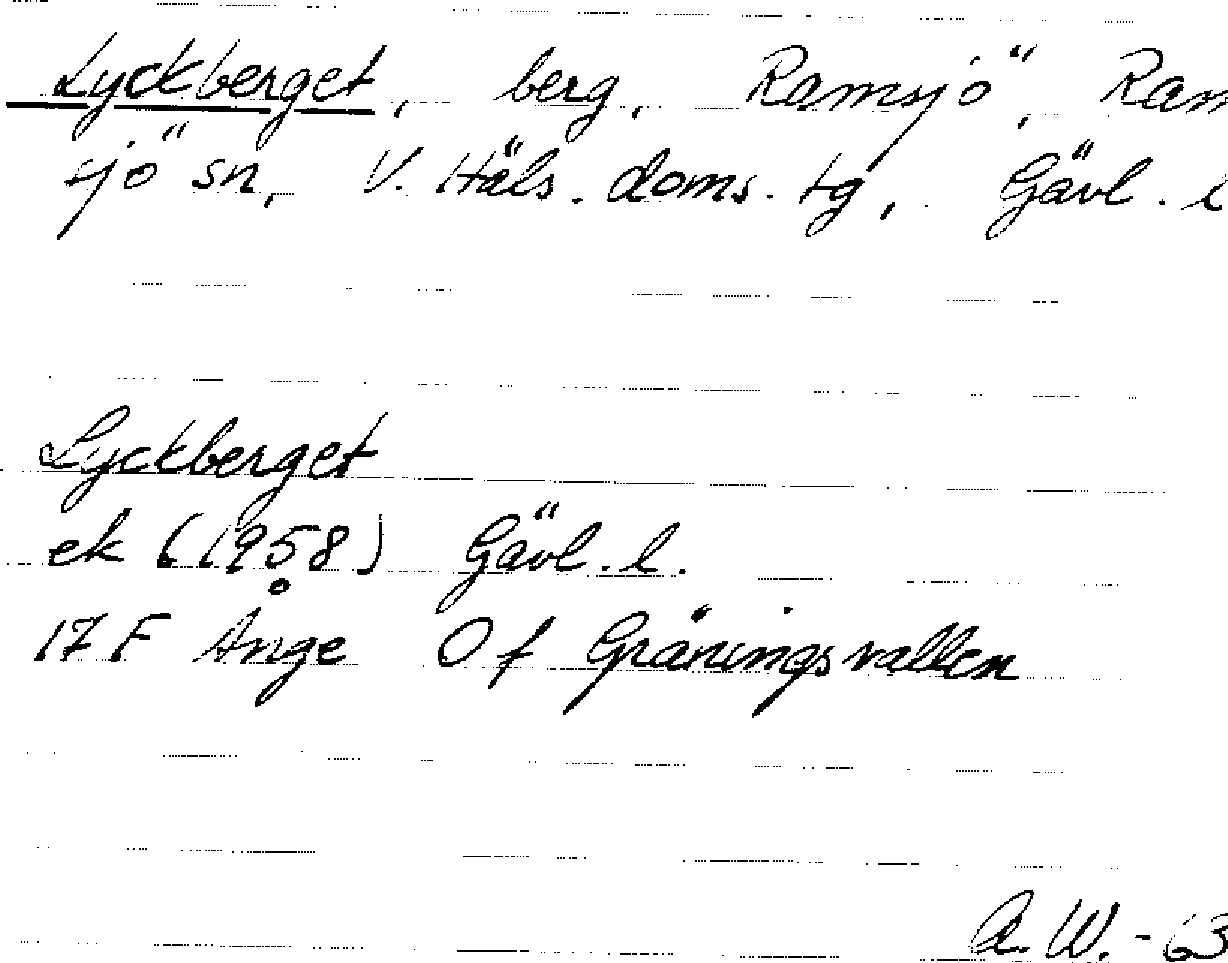 Lyckberget, berg, Ramsjö, Ram
sjö sn, V. Häls. doms. tg, Gävl. l
Lyckberget
ek (1958) Gävl. l.
17 F Ånge Of Gräningsvallen
A. W. - 63